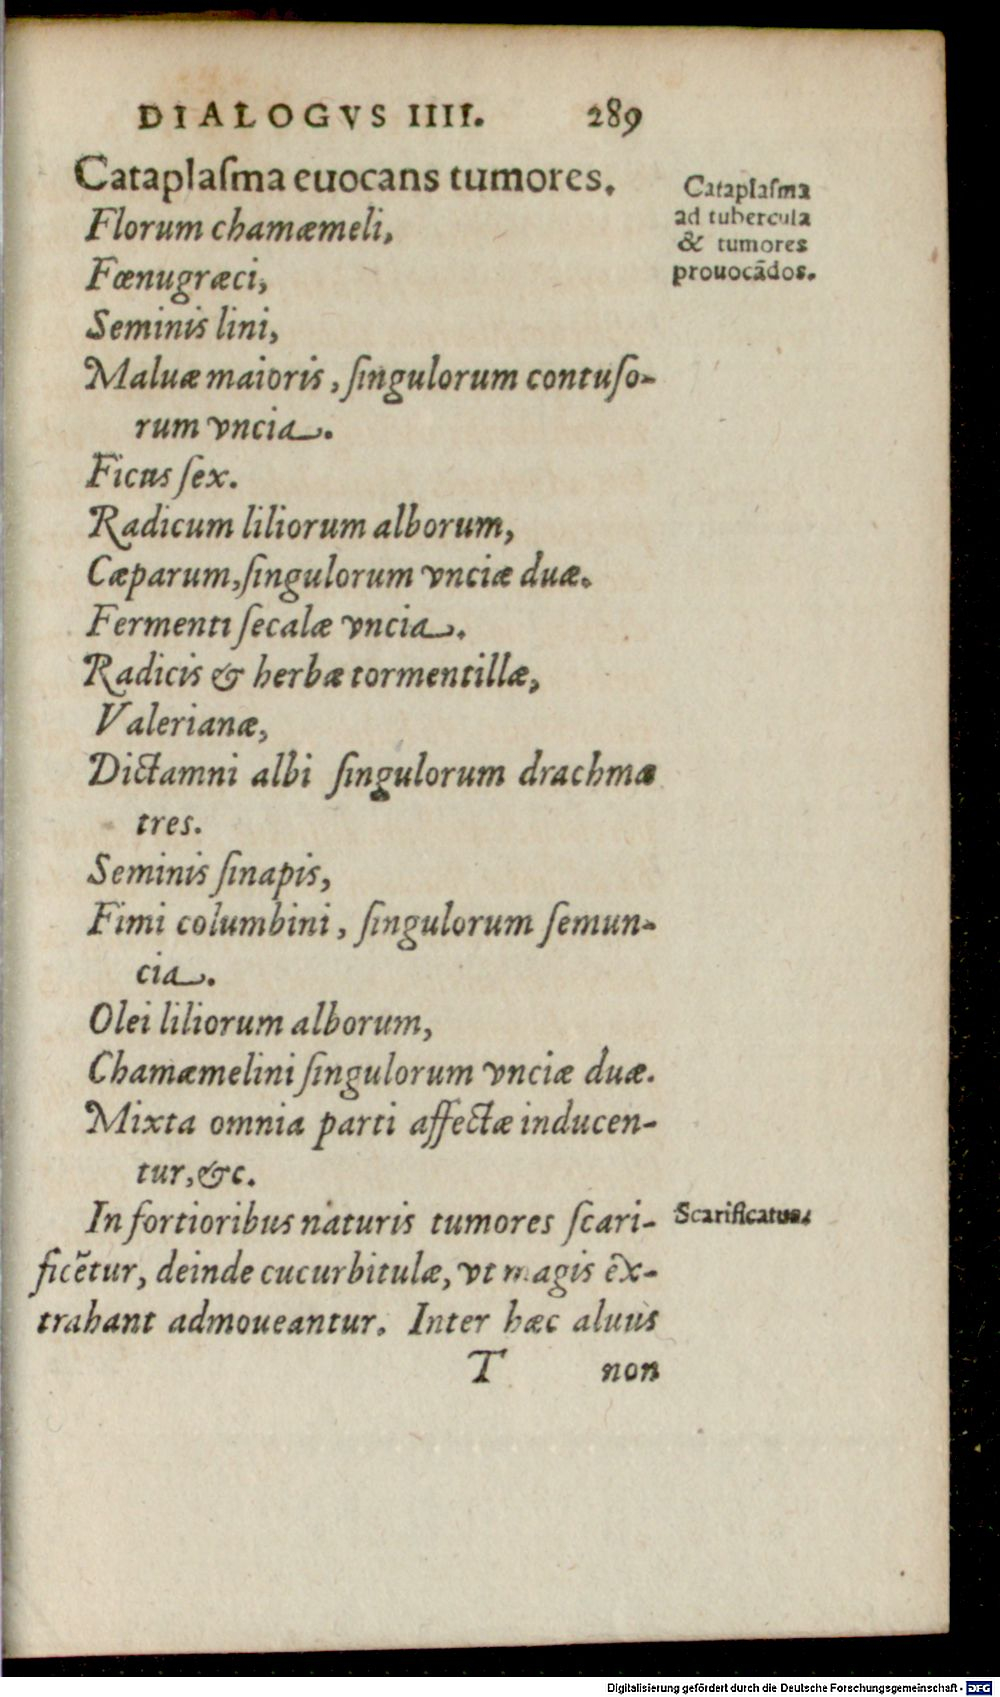 DIALOGVS IIII. 289
Cataplaſma euocans tumores.
Cataplaſma
ad tubercula
& tumores
prouocādos.
Florum chamæmeli,
Fœnugræci,
Seminis lini,
Maluæ maioris, ſingulorum contuſo-
rum vncia.
Ficus ſex.
Radicum liliorum alborum,
Cæparum, ſingulorum vnciæ duæ.
Fermenti ſecalæ vncia.
Radicis & herbæ tormentillæ,
Valerianæ,
Dictamni albi ſingulorum drachmæ
tres.
Seminis ſinapis,
Fimi columbini, ſingulorum ſemun-
cia.
Olei liliorum alborum,
Chamæmelini ſingulorum vnciæ duæ.
Mixta omnia parti affectæ inducen-
tur, &c.
In fortioribus naturis tumores ſcari-
Scarificatus.
ficētur, deinde cucurbitulæ, vt magis ex-
trahant admoueantur. Inter hæc aluus
T non
Digitalisierung gefördert durch die Deutsche Forschungsgemeinschaft - DFG